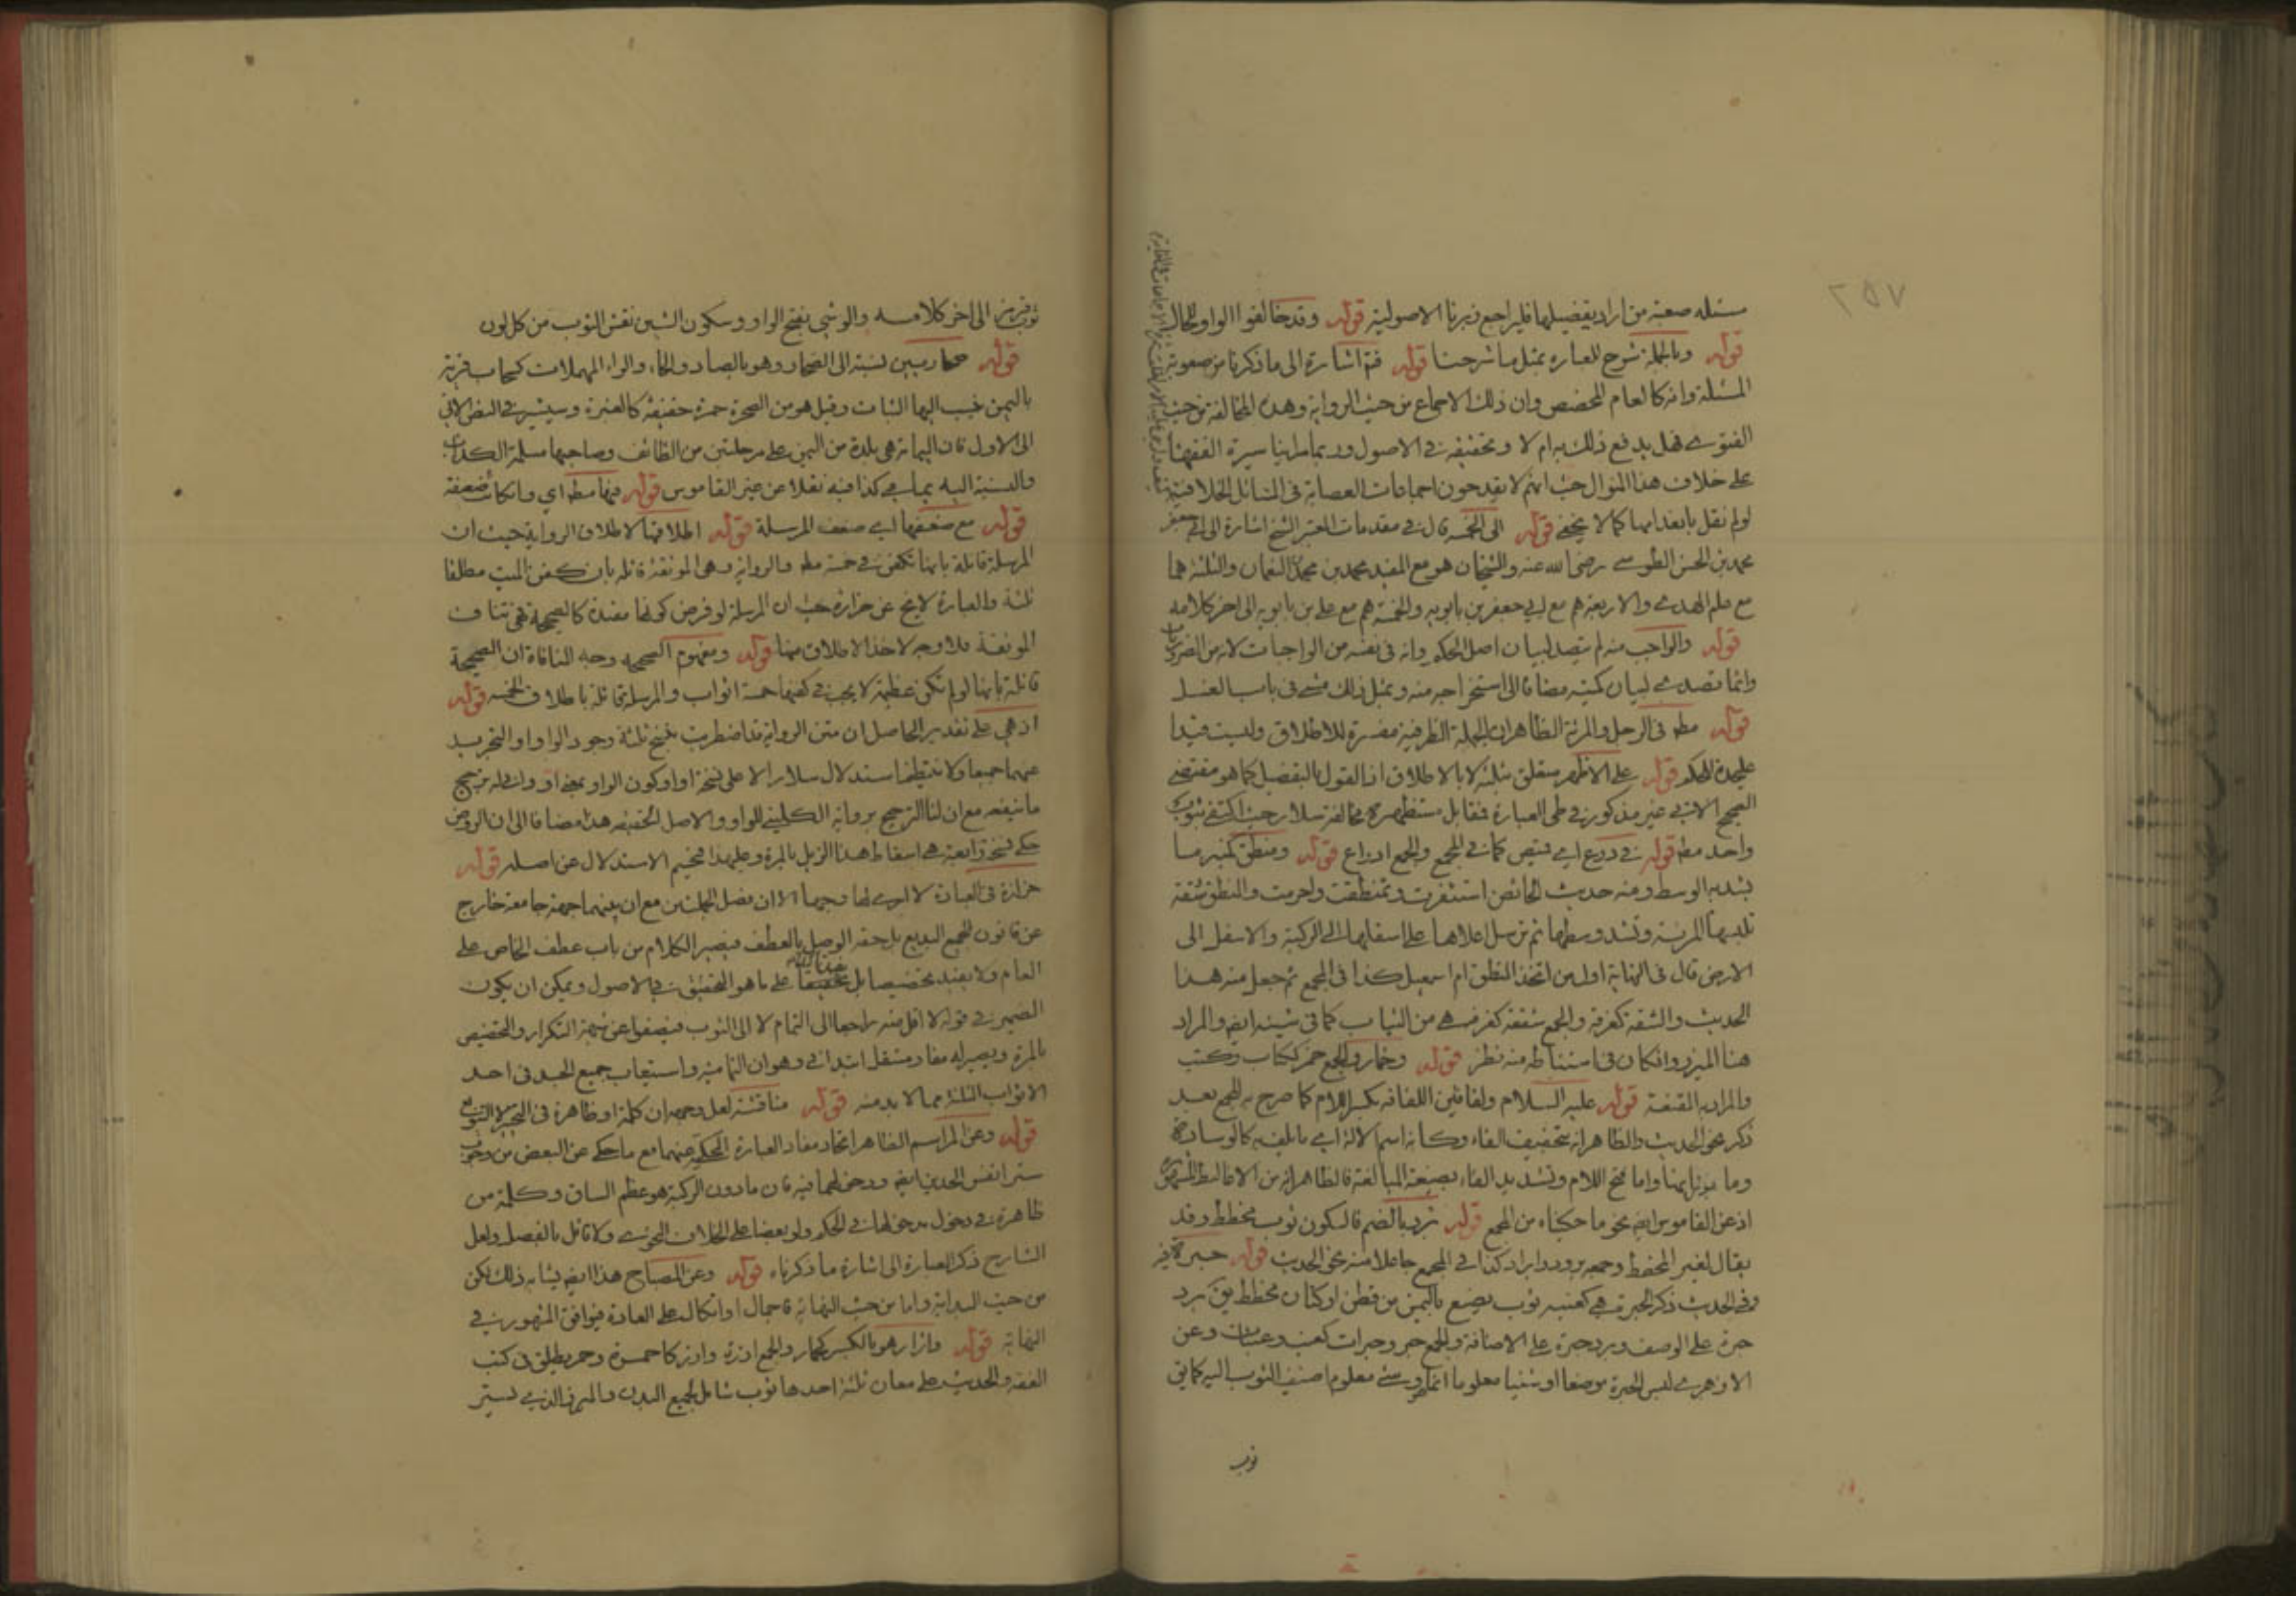 ۲۵۷
مسئله صعبة من اراد تفصيلها فليراجع زبرنا الاصولية قوله وقد خالفوا الواو للحال
قوله وبالجملة شرح للعبارة بمثل ما شرحنا قوله فتم اشارة الى ما ذكرنا من صعوبة
المسئلة وانه كالعام المخصص وان ذلك الاجماع من حيث الرواية وهذه المخالفة من حيث
الفتوى فهل يدفع ذلك به ام لا وتحقيقه في الاصول وربما راينا سيرة الفقهاء
على خلاف هذا المنوال حيث انهم لا يقدحون اجماعات العصابة في المسائل الخلافية
لو لم نقل بانعدامها كما لا يخفى قوله الى الخمسة قال في مقدمات المعتبر الشيخ اشارة الى ابي جعفر
محمد بن الحسن الطوسي رضي الله عنه والشيخان هو مع المفيد محمد بن محمد النعمان والثلثة هما
مع علم الهدى والاربعة هم مع ابي جعفر بن بابويه والخمسة هم مع علي بن بابويه الى اخر كلامه
قوله والواجب منه لم يتصد لبيان اصل الحكم وانه في نفسه من الواجبات لانه من الضروريات
وانما تصدى لبيان كميته مضافا الى استخراجه منه وبمثل ذلك مشى في باب الغسل
قوله مطه في الرجل والمرئة الظاهر ان الجملة الظرفية مفسرة للاطلاق وليست قيدا
عليحدة للحكم قوله على الاظهر متعلق بثلثة لا بالاطلاق اذ القول بالتفصيل كما هو مقتضى
الصحيح الاتي غير مذكور في طي العبارة فقابل مستظهره مخالفة سلار حيث اكتفى بثوب
واحد مطه قوله في درع اي قميص كما في المجمع والجمع ادراع قوله ومنطق كمنبر ما
يشد به الوسط ومنه حديث الحائض استثفرت وتمنطقت واحرمت والنطق شقة
تلبسها المرئة وتشد وسطها ثم ترسل اعلاها على اسفلها الى الركبة والاسفل الى
الارض قال في النهاية اول من اتخذ النطق ام اسمعيل كذا في المجمع ثم جعل منه هذا
الحديث والشقة كغرفة والجمع شقق كغرف هي من الثياب كما في شينه ايضه والمراد
هنا الميزر وانكان في استنباطه منه نظر قوله وخمار والجمع خمر ككتاب وكتب
والمراد به المقنعة قوله عليه السلام ولفافتين اللفافة بكسر اللام كما صرح به المجمع بعد
ذكر نحو الحديث والظاهر انه بتخفيف الفاء وكانه اسم الالة اي ما يلف به كالوسادة
اذ عن القاموس ايضه نحو ما حكيناه من المجمع قوله برد بالضم فالسكون ثوب مخطط وقد
يقال لغير المخطط وجمعه برود وابراد كذا في المجمع جاعلا منه نحو الحديث قوله حبرة
وفي الحديث ذكر الحبرة هي كعنبة ثوب يصنع باليمن من قطن او كتان مخطط يق برد
حبرة على الوصف وبرد حبرة على الاضافة والجمع حبر وحبرات كعنب وعنبات وعن
الازهري ليس الحبرة موضعا او شيئا معلوما انما هو وشي معلوم اضيف الثوب اليه كما يق
ثوب
ثوب قرمز الى اخر كلامه والوشي بفتح الواو وسكون الشين نقش الثوب من كل لون
قوله صحاريين نسبة الى الصحار وهو بالصاد والحاء والراء المهملات كسحاب قرية
باليمن نسب اليها الثياب وقيل هو من الصحرة حمرة خفيفة كالغبرة وسيشير في النص الاتي
الى الاول فان اليمامة هي بلدة من اليمن على مرحلتين من الطائف وصاحبها مسيلمة الكذاب
والنسبة اليه يمامي كذا فيه نقلا عن عين القاموس قوله فيها مطه اي وانكانت ضعيفة
قوله مع ضعفها اي ضعف المرسلة قوله اطلاقها لاطلاق الرواية حيث ان
المرسلة قائلة بانها تكفن في خمسة مطه والرواية وهي الموثقة قائلة بان كفن الميت مطلقا
ثلثة والعبارة لا تخ عن حزازة حيث ان المرسلة لو فرض كونها مقيدة كالصحيحة فهي تنافي
الموثقة فلا وجه لاخذ الاطلاق منها قوله ومفهوم الصحيحة وجه المنافاة ان الصحيحة
قائلة بانها لو لم تكن عظيمة لا يجب في كفنها خمسة اثواب والمرسلة قائلة باطلاق الخمسة قوله
اذ هي على تقدير الحاصل ان متن الرواية قد اضطربت بنسخ ثلثة وجود الواو او والتجريد
عنهما جميعا ولا ينطبق استدلال سلار الا على نسخة او او كون الواو بمعنى او وانى له ترجيح
ما ينفعه مع ان لنا الترجيح برواية الكليني للواو والاصل الحقيقة هذا مضافا الى ان الروض
حكى نسخة رابعة هي اسقاط هذا الذيل بالمرة وعليها فيخيم الاستدلال عن اصله قوله
حزازة في العبارة لا ارى لها وجها الا ان فصل الجملتين مع ان بينهما جهة جامعة خارج
عن قانون الجمع البديع بل حقه الوصل بالعطف فيصير الكلام من باب عطف الخاص على
العام ولا يفيد تخصيصا بل تحقيقا على ما هو التحقيق في الاصول ويمكن ان يكون
الضمير في قوله لا اقل منه راجعا الى التمام لا الى الثوب فيصفوا عن شبهة التكرار والتخصيص
بالمرة ويصير له مفاد مستقل ابتدائي وهو ان التمامية واستيعاب جميع الجسد في احد
الاثواب الثلثة مما لا بد منه قوله مناقشة لعل وجهه ان كلمة او ظاهرة في التخيير لا التنويع
قوله وعن المراسم الظاهر اتحاد مفاد العبارة المحكية عنهما مع ما حكي عن البعض من وجوب
ظاهرة في دخول مدخولها في الحكم ولو بعضا على الخلاف النحوي ولا قائل بالفصل ولعل
الشارح ذكر العبارة الى اشارة ما ذكرناه قوله وعن المصباح هذا ايضه يشابه ذلك لكن
من حيث البداية واما من حيث النهاية فاجمال او اتكال على العادة فيوافق المشهور في
النهاية قوله وازار هو بالكسر كخمار والجمع ازرة وازر كاحمرة وحمر يطلق في كتب
الفقه والحديث على معان ثلثة احدها ثوب شامل لجميع البدن والميزر الذي يستر